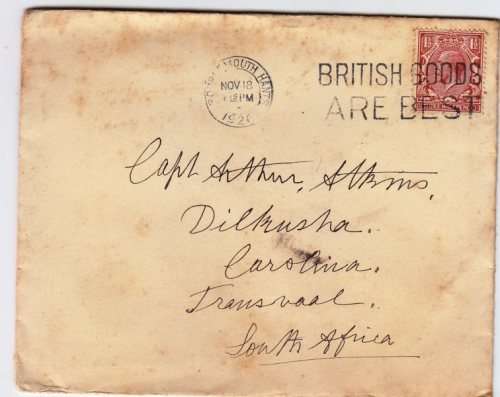 MOUTH HANTS
NOV 18
PM
BRITISH GOODS
ARE BEST
1½
Capt Arthur, Atkins,
Dilkusha.
Carolina.
Transvaal.
South Africa